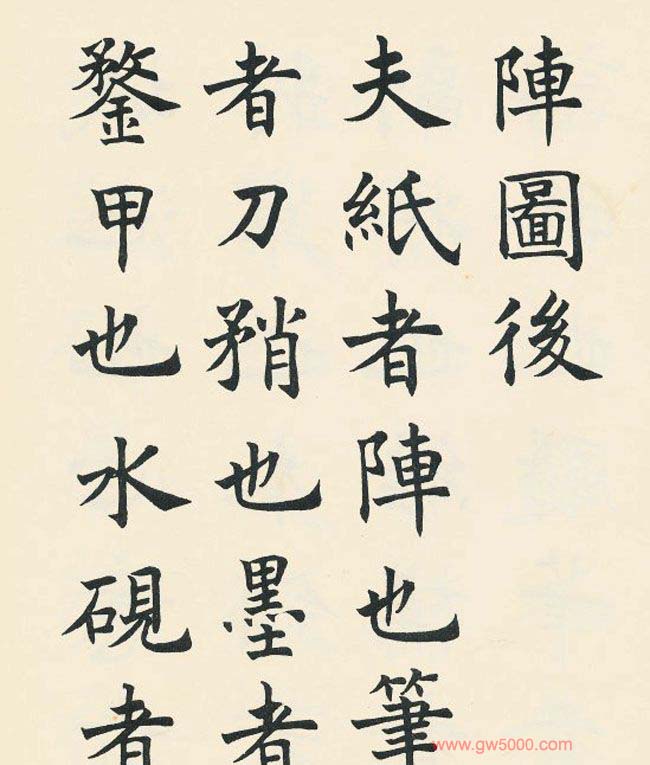 陣圖後
夫紙者陣也筆
者刀矟也墨者
鍪甲也水硯者
www.gw5000.com